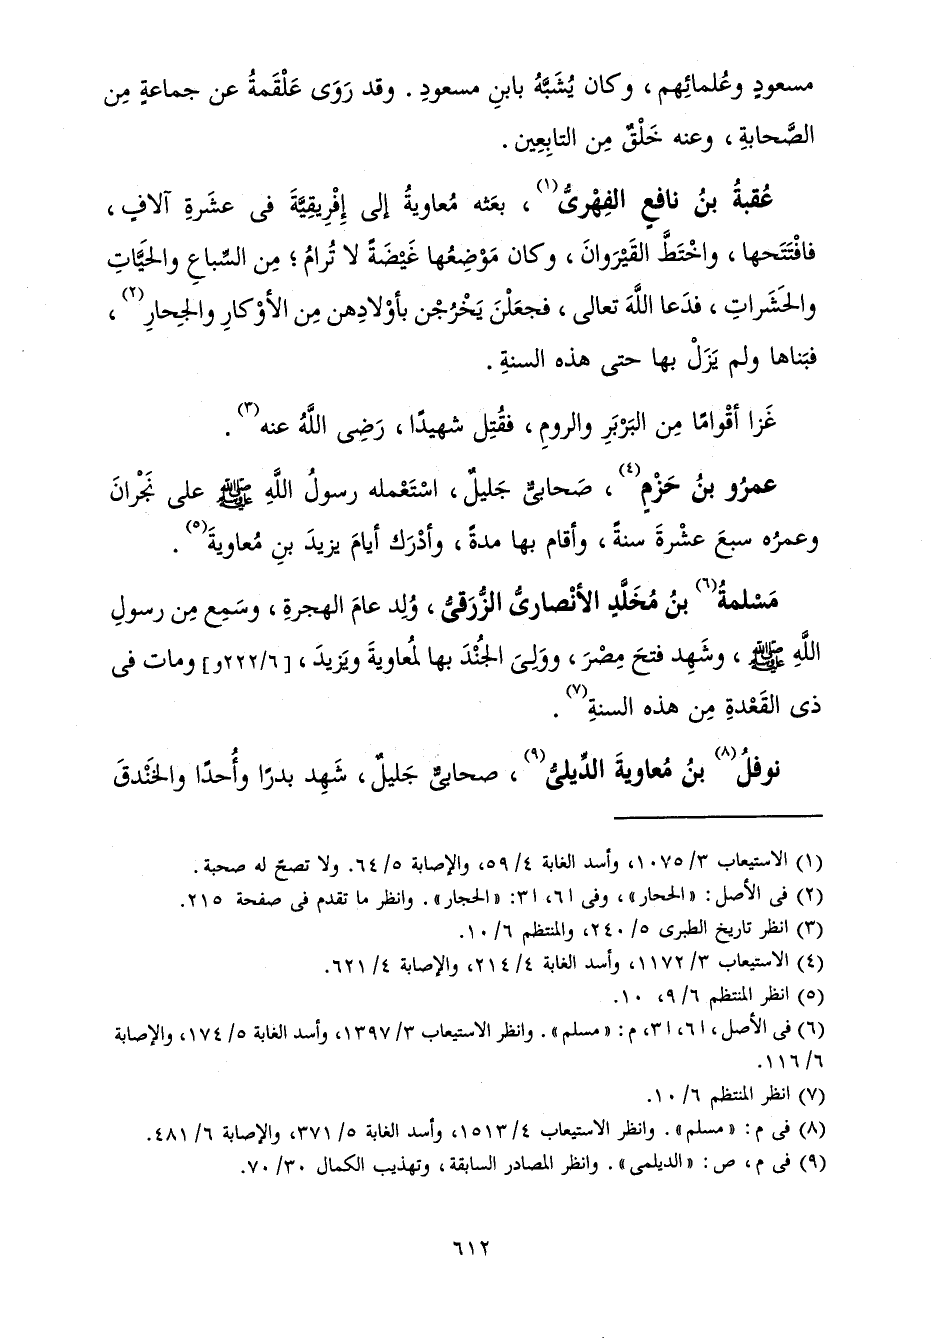 مسعودٍ وعُلمائِهم ، وكان يُشَبَّهُ بابنِ مسعودٍ . وقد رَوَى عَلْقَمةُ عن جماعةٍ مِن
الصَّحابةِ ، وعنه خَلْقٌ مِن التابِعِين .
عُقبةُ بنُ نافعٍ الفِهْرىُّ(١) ، بعَثه مُعاويةُ إلى إفْرِيقِيَّةَ فى عشَرةِ آلافٍ ،
فافْتَتَحها ، واخْتَطَّ القَيْرَوانَ ، وكان مَوْضِعُها غَيْضَةً لا تُرامُ ؛ مِن السِّباعِ والحَيَّاتِ
والحَشَراتِ ، فدَعا اللَّهَ تعالى ، فجعَلْنَ يَخْرُجْن بأوْلادِهن مِن الأوْكارِ والجِحارِ(٢) ،
فبَناها ولم يَزَلْ بها حتى هذه السنةِ .
غَزا أقْوامًا مِن البَرْبَرِ والرومِ ، فقُتِل شهيدًا ، رَضِى اللَّهُ عنه(٣) .
عمرُو بنُ حَزْمٍ(٤) ، صَحابىٌّ جَليلٌ ، اسْتَعْمله رسولُ اللَّهِ ﷺ على نَجْرانَ
وعمرُه سبعَ عشْرةَ سنةً ، وأقام بها مدةً ، وأدْرَك أيامَ يزيدَ بنِ مُعاويةَ(٥) .
مَسْلمةُ(٦) بنُ مُخَلَّدٍ الأنْصارىُّ الزُّرَقىُّ ، وُلِد عامَ الهجرةِ ، وسَمِع مِن رسولِ
اللَّهِ ﷺ ، وشَهِد فتحَ مِصْرَ ، ووَلِىَ الجُنْدَ بها لمُعاويةَ ويَزيدَ ، [٢٢٢/٦و] ومات فى
ذى القَعْدةِ مِن هذه السنةِ(٧) .
نوفلُ(٨) بنُ مُعاويةَ الدِّيلىُّ(٩) ، صحابىٌّ جَليلٌ ، شَهِد بدرًا وأُحدًا والخَنْدقَ
(١) الاستيعاب ٣/ ١٠٧٥، وأسد الغابة ٤/ ٥٩، والإصابة ٥/ ٦٤. ولا تصحّ له صحبة .
(٢) فى الأصل : «الححار» ، وفى ا٦، ا٣: «الحجار» . وانظر ما تقدم فى صفحة ٢١٥.
(٣) انظر تاريخ الطبرى ٥/ ٢٤٠، والمنتظم ٦/ ١٠.
(٤) الاستيعاب ٣/ ١١٧٢، وأسد الغابة ٤/ ٢١٤، والإصابة ٤/ ٦٢١.
(٥) انظر المنتظم ٦/ ٩، ١٠.
(٦) فى الأصل ، ا٦، ا٣، م : «مسلم» . وانظر الاستيعاب ٣/ ١٣٩٧، وأسد الغابة ٥/ ١٧٤، والإصابة
٦/ ١١٦.
(٧) انظر المنتظم ٦/ ١٠.
(٨) فى م : «مسلم» . وانظر الاستيعاب ٤/ ١٥١٣، وأسد الغابة ٥/ ٣٧١، والإصابة ٦/ ٤٨١.
(٩) فى م ، ص : «الديلمى» . وانظر المصادر السابقة ، وتهذيب الكمال ٣٠/ ٧٠.
٦١٢